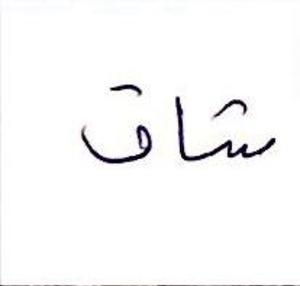 شاق